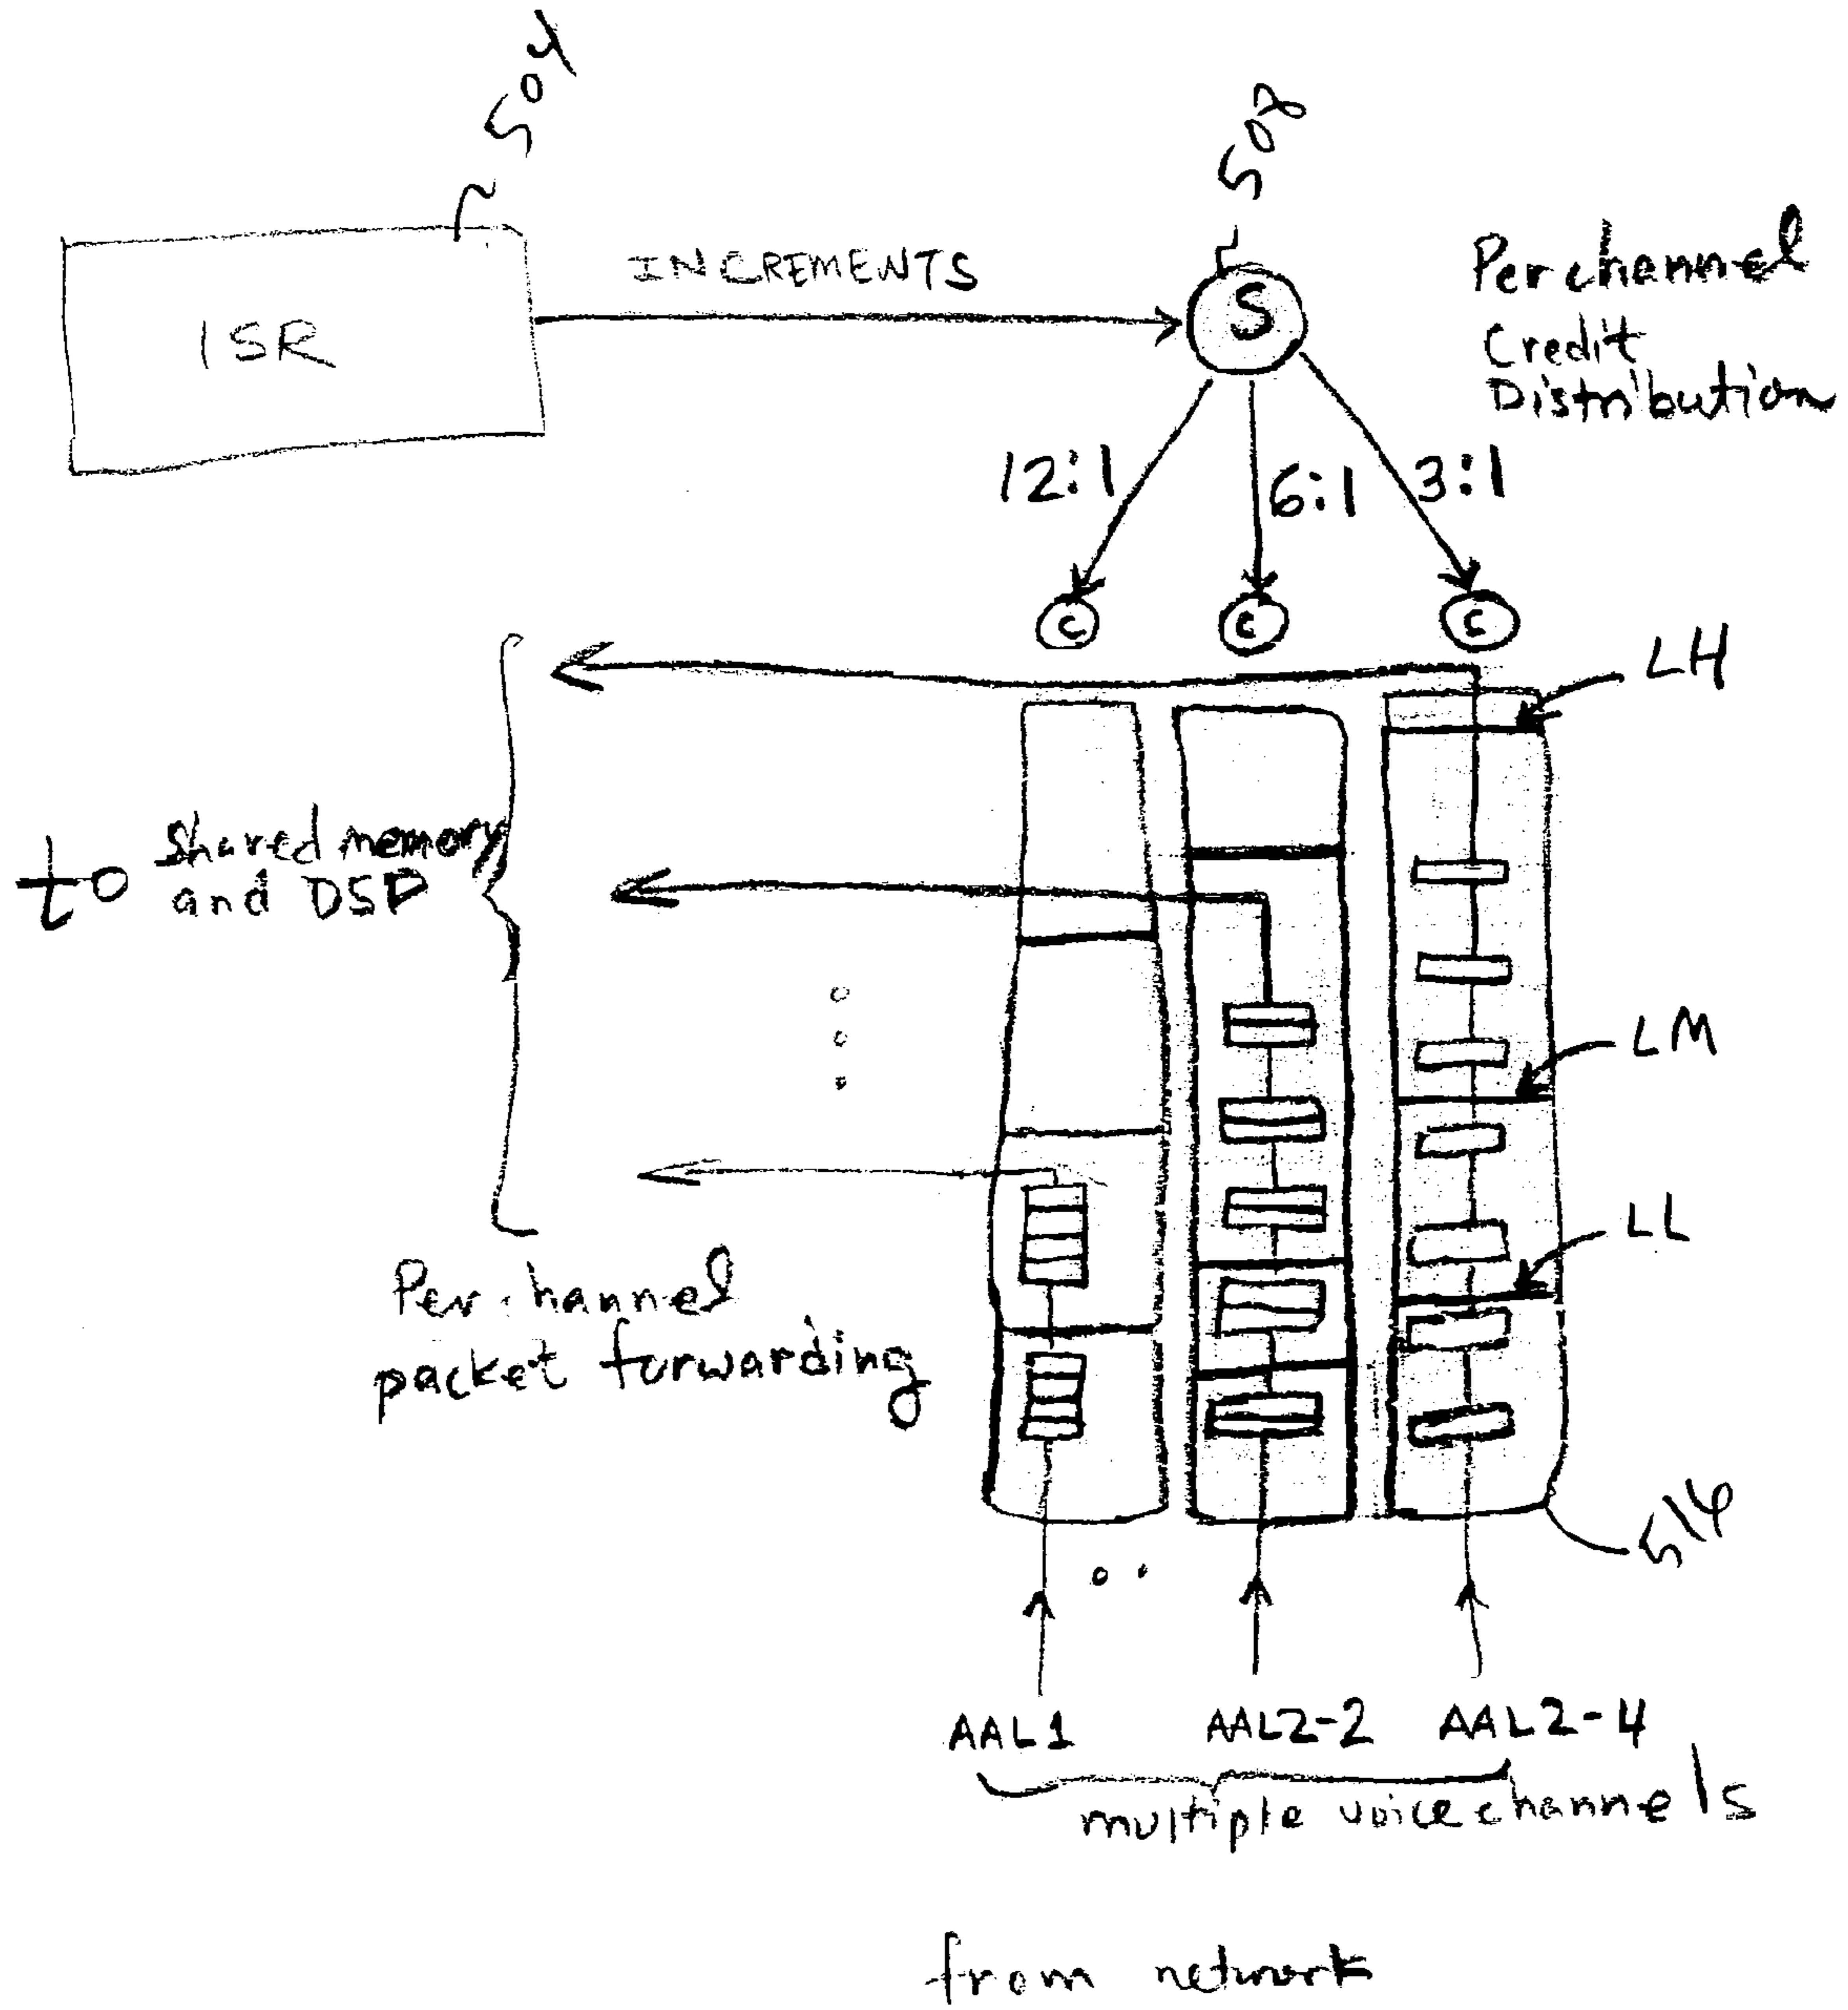 504
508
INCREMENTS
ISR
S
Per channel
Credit
Distribution
12:1
6:1
3:1
C
C
C
LH
to shared memory
and DSP
LM
LL
Per channel
packet forwarding
AAL1
AAL2-2
AAL2-4
multiple voice channels
from network